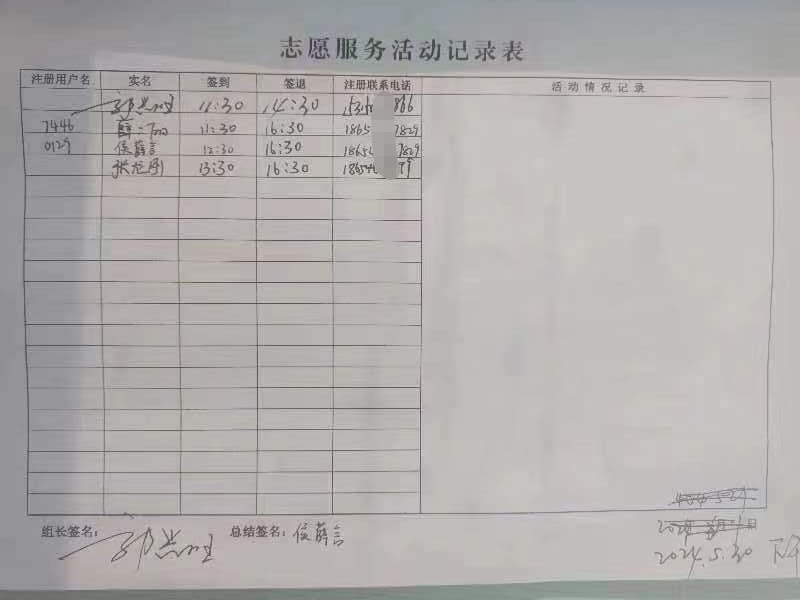 志愿服务活动记录表
注册用户名 实名 签到 签退 注册联系电话 活动情况记录
11:30 14:30 866
7446 薛 11:30 16:30 1865 7829
0129 侯薛言 12:30 16:30 1865 7829
张龙刚 13:30 16:30 18654
组长签名: 总结签名: 侯薛言
2024.5.30 下午